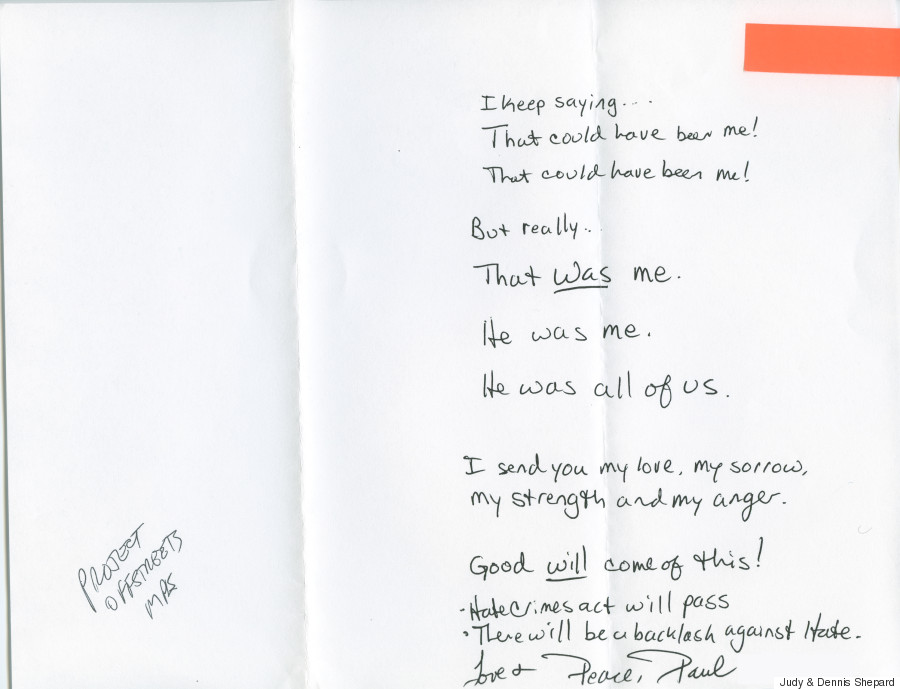 I keep saying...
That could have been me!
That could have been me!
But really...
That was me.
He was me.
He was all of us.
I send you my love, my sorrow,
my strength and my anger.
Good will come of this!
- Hate Crimes act will pass
• There will be a backlash against Hate.
Love & Peace, Paul
PROJECT
OFFSTREETS
MPLS
Judy & Dennis Shepard